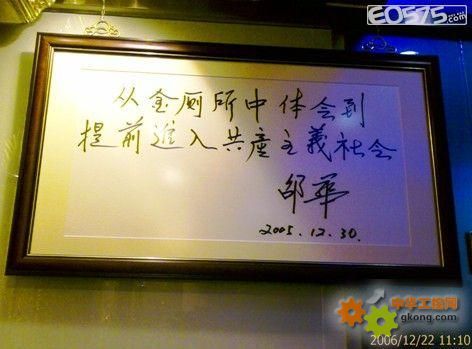 EO575.com
从金厕所中体会到
提前進入共產主義社会
邵華
2005.12.30.
中华工控网
gkong.com
2006/12/22 11:10